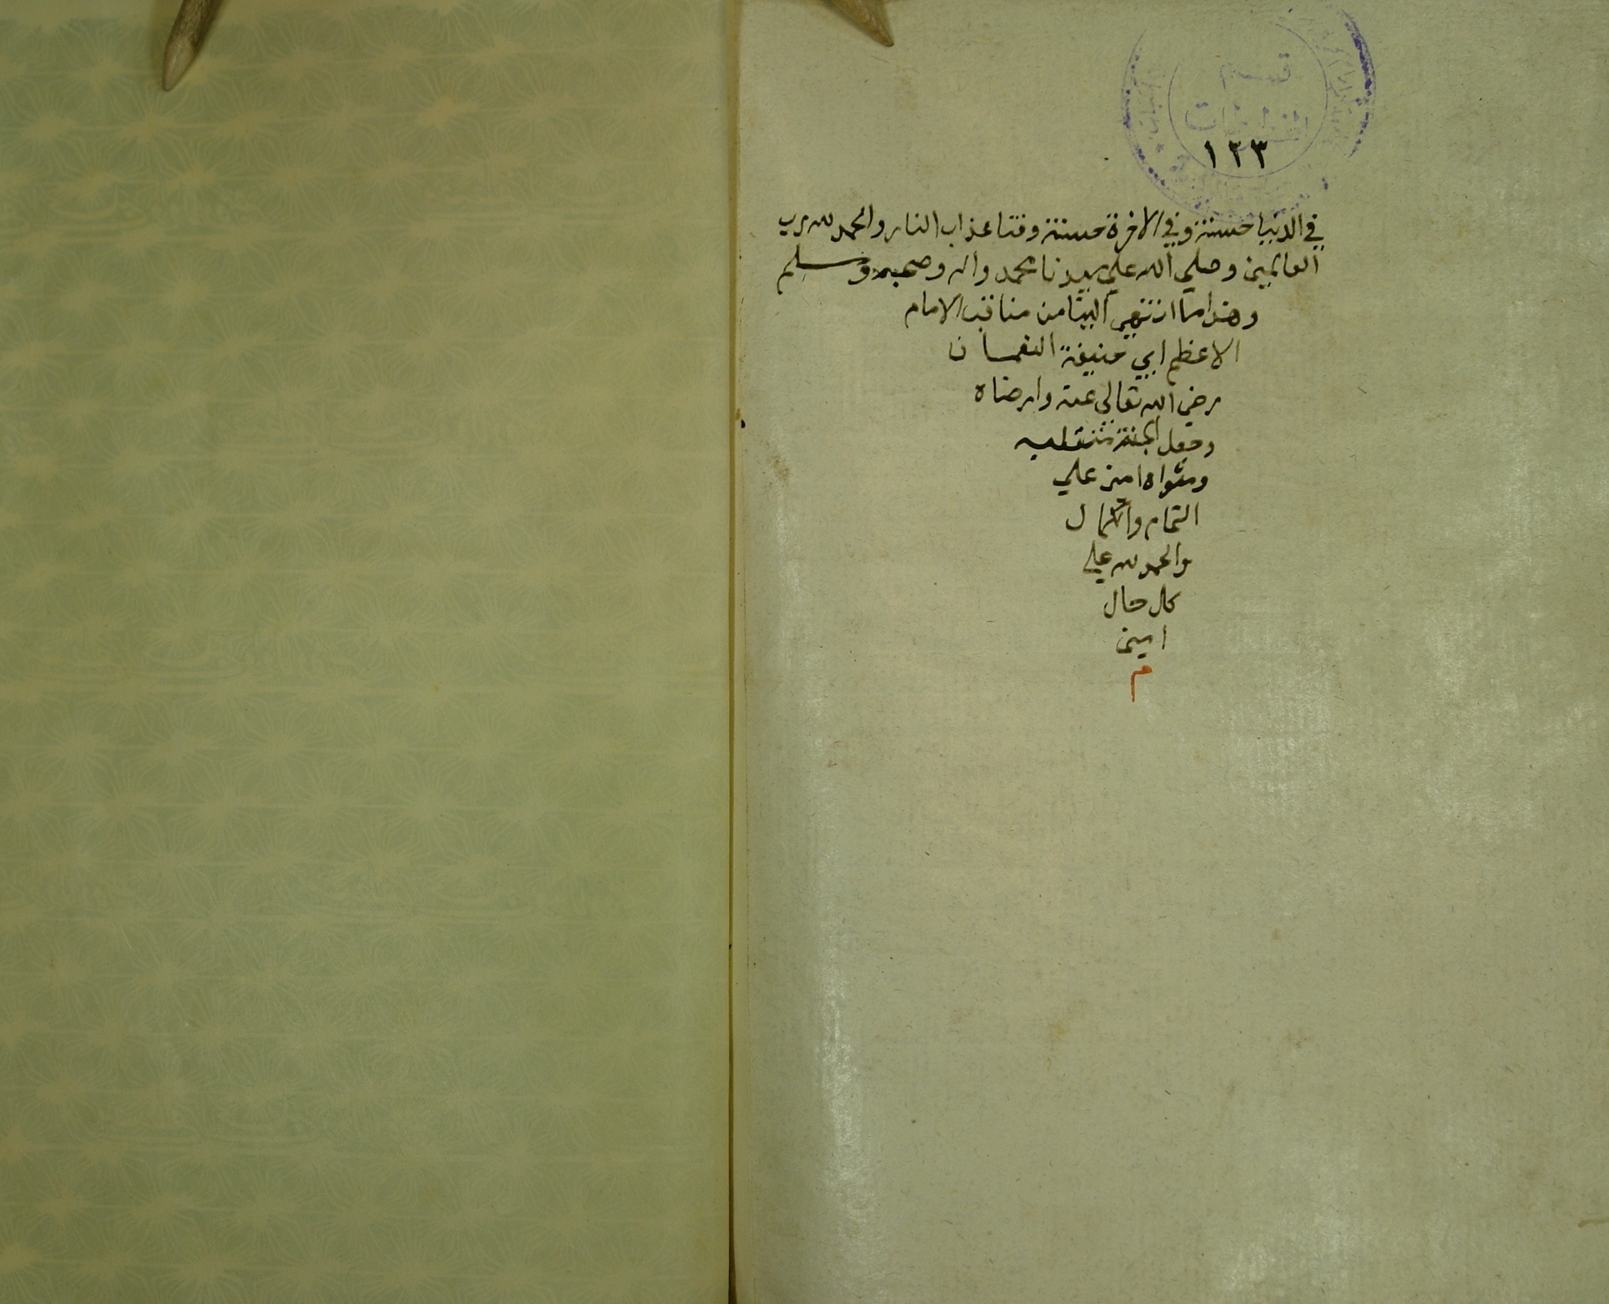 قسم
المخطوطات
١٢٣
في الدنيا حسنة وفي الاخرة حسنة وقنا عذاب النار والحمد لله رب
العالمين وصلي الله علي سيدنا محمد واله وصحبه وسلم
وهذا ما انتهي الينا من مناقب الامام
الاعظم ابي حنيفة النعمان
رضي الله تعالى عنه وارضاه
وجعل الجنة متقلبه
ومثواه امين علي
التمام والكمال
والحمد لله علي
كل حال
امين
م